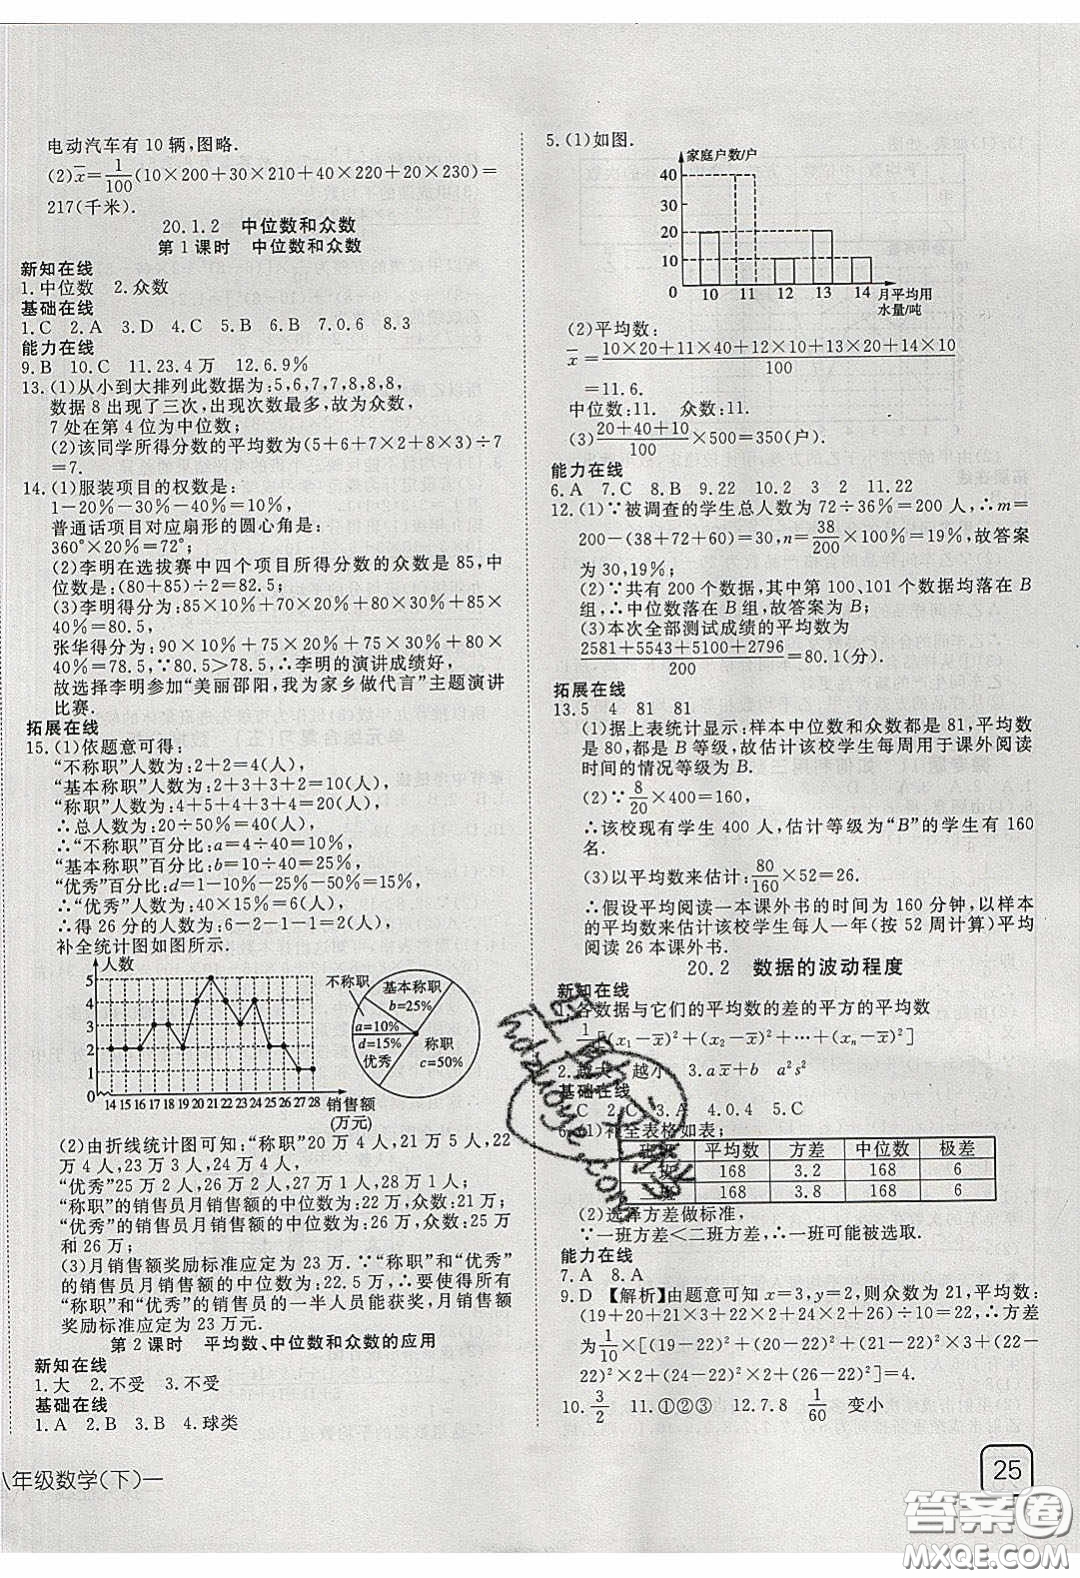 电动汽车有 10 辆,图略.
(2)x̄=1/100(10×200+30×210+40×220+20×230)=
217(千米).
20.1.2 中位数和众数
第 1 课时 中位数和众数
新知在线
1.中位数 2.众数
基础在线
1.C 2.A 3.D 4.C 5.B 6.B 7.0.6 8.3
能力在线
9.B 10.C 11.23.4 万 12.6.9%
13.(1)从小到大排列此数据为:5,6,7,7,8,8,8,
数据 8 出现了三次,出现次数最多,故为众数,
7 处在第 4 位为中位数;
(2)该同学所得分数的平均数为(5+6+7×2+8×3)÷7
=7.
14.(1)服装项目的权数是:
1-20%-30%-40%=10%,
普通话项目对应扇形的圆心角是:
360°×20%=72°;
(2)李明在选拔赛中四个项目所得分数的众数是 85,中
位数是:(80+85)÷2=82.5;
(3)李明得分为:85×10%+70×20%+80×30%+85×
40%=80.5,
张华得分为:90×10%+75×20%+75×30%+80×
40%=78.5,∵80.5>78.5,∴李明的演讲成绩好,
故选择李明参加“美丽邵阳,我为家乡做代言”主题演讲
比赛.
拓展在线
15.(1)依题意可得:
“不称职”人数为:2+2=4(人),
“基本称职”人数为:2+3+3+2=10(人),
“称职”人数为:4+5+4+3+4=20(人),
∴总人数为:20÷50%=40(人),
∴“不称职”百分比:a=4÷40=10%,
“基本称职”百分比:b=10÷40=25%,
“优秀”百分比:d=1-10%-25%-50%=15%,
∴“优秀”人数为:40×15%=6(人),
∴得 26 分的人数为:6-2-1-1=2(人),
补全统计图如图所示.
人数
5
4
3
2
1
0
14 15 16 17 18 19 20 21 22 23 24 25 26 27 28 销售额
(万元)
不称职
a=10%
基本称职
b=25%
d=15%
优秀
称职
c=50%
(2)由折线统计图可知:“称职”20 万 4 人,21 万 5 人,22
万 4 人,23 万 3 人,24 万 4 人,
“优秀”25 万 2 人,26 万 2 人,27 万 1 人,28 万 1 人,
“称职”的销售员月销售额的中位数为:22 万,众数:21 万;
“优秀”的销售员月销售额的中位数为:26 万,众数:25 万
和 26 万;
(3)月销售额奖励标准应定为 23 万元.∵“称职”和“优秀”
的销售员月销售额的中位数为:22.5 万,∴要使得所有
“称职”和“优秀”的销售员的一半人员能获奖,月销售额
奖励标准应定为 23 万元.
第 2 课时 平均数、中位数和众数的应用
新知在线
1.大 2.不受 3.不受
基础在线
1.A 2.B 3.B 4.球类
八年级数学(下)一
5.(1)如图.
家庭户数/户
40
30
20
10
0
10 11 12 13 14 月平均用
水量/吨
(2)平均数:
x̄=(10×20+11×40+12×10+13×20+14×10)/100
=11.6.
中位数:11. 众数:11.
(3)(20+40+10)/100×500=350(户).
能力在线
6.A 7.C 8.B 9.22 10.2 3 2 11.22
12.(1)∵被调查的学生总人数为 72÷36%=200 人,∴m=
200-(38+72+60)=30,n=38/200×100%=19%,故答案
为 30,19%;
(2)∵共有 200 个数据,其中第 100、101 个数据均落在 B
组,∴中位数落在 B 组,故答案为 B;
(3)本次全部测试成绩的平均数为
(2581+5543+5100+2796)/200=80.1(分).
拓展在线
13.5 4 81 81
(1)根据上表统计显示:样本中位数和众数都是 81,平均数
是 80,都是 B 等级,故估计该校学生每周用于课外阅读
时间的情况等级为 B.
(2)∵8/20×400=160,
∴该校现有学生 400 人,估计等级为“B”的学生有 160
名.
(3)以平均数来估计:80/160×52=26.
∴假设平均阅读一本课外书的时间为 160 分钟,以样本
的平均数来估计该校学生每人一年(按 52 周计算)平均
阅读 26 本课外书.
20.2 数据的波动程度
新知在线
1.各数据与它们的平均数的差的平方的平均数
1/n[(x₁-x̄)²+(x₂-x̄)²+…+(xₙ-x̄)²]
2.越大 越小 3.ax̄+b a²s²
基础在线
1.C 2.C 3.A 4.0.4 5.C
6.(1)补全表格如表;
班级 平均数 方差 中位数 极差
一班 168 3.2 168 6
二班 168 3.8 168 6
(2)选择方差做标准,
∵一班方差<二班方差,∴一班可能被选取.
能力在线
7.A 8.A
9.D 【解析】由题意可知 x=3,y=2,则众数为 21,平均数:
(19+20+21×3+22×2+24×2+26)÷10=22,∴方差
为1/10×[(19-22)²+(20-22)²+(21-22)²×3+(22-
22)²×2+(24-22)²×2+(26-22)²]=4.
10.3/2 11.①②③ 12.7.8 1/60 变小
25
hdzuoye.com
答案圈
MXQE.COM